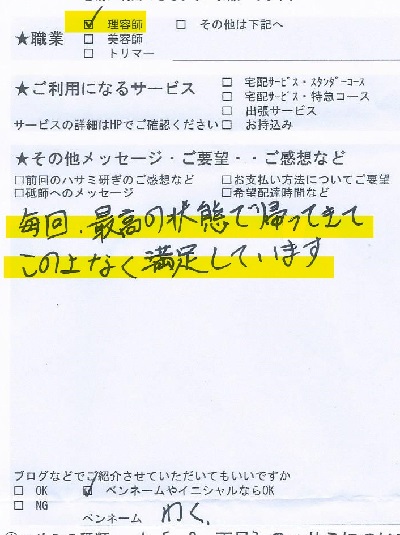 ☑ 理容師 □ その他は下記へ
★職業 □ 美容師
□ トリマー
★ご利用になるサービス □ 宅配サービス・スタンダードコース
□ 宅配サービス・特急コース
□ 出張サービス
サービスの詳細はHPでご確認ください □ お持込み
★その他メッセージ・ご要望・・ご感想など
□前回のハサミ研ぎのご感想など □お支払い方法についてご要望
□砥師へのメッセージ □希望配達時間など
毎回、最高の状態で帰ってきて
この上なく満足しています
ブログなどでご紹介させていただいてもいいですか
□ OK ☑ ペンネームやイニシャルならOK
□ NG
ペンネーム わく.